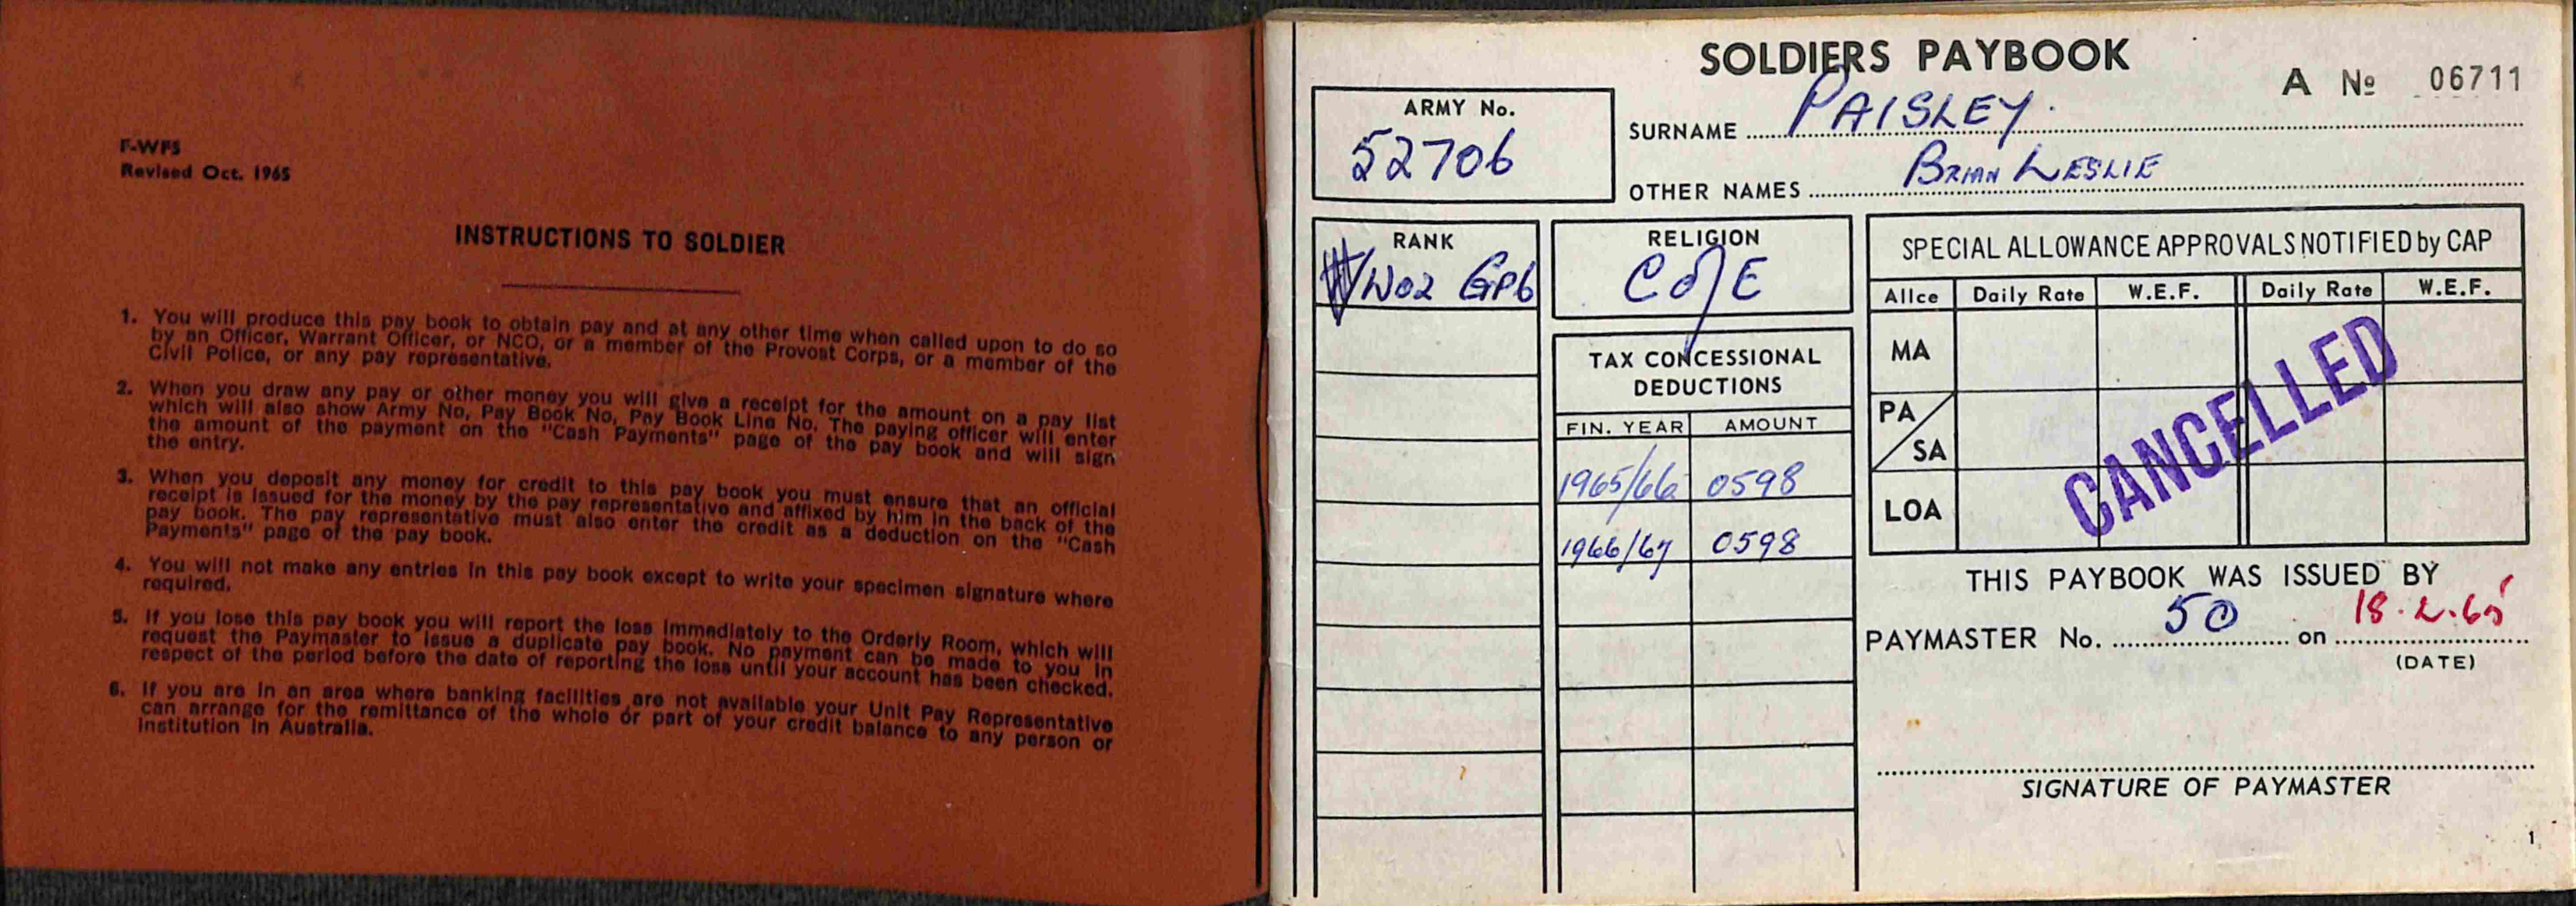 F-WFS
Revised Oct. 1965
INSTRUCTIONS TO SOLDIER
1. You will produce this pay book to obtain pay and at any other time when called upon to do so
by an Officer, Warrant Officer, or NCO, or a member of the Provost Corps, or a member of the
Civil Police, or any pay representative.
2. When you draw any pay or other money you will give a receipt for the amount on a pay list
which will also show Army No, Pay Book No, Pay Book Line No. The paying officer will enter
the amount of the payment on the "Cash Payments" page of the pay book and will sign
the entry.
3. When you deposit any money for credit to this pay book you must ensure that an official
receipt is issued for the money by the pay representative and affixed by him in the back of the
pay book. The pay representative must also enter the credit as a deduction on the "Cash
Payments" page of the pay book.
4. You will not make any entries in this pay book except to write your specimen signature where
required.
5. If you lose this pay book you will report the loss immediately to the Orderly Room, which will
request the Paymaster to issue a duplicate pay book. No payment can be made to you in
respect of the period before the date of reporting the loss until your account has been checked.
6. If you are in an area where banking facilities are not available your Unit Pay Representative
can arrange for the remittance of the whole or part of your credit balance to any person or
institution in Australia.
SOLDIERS PAYBOOK
A No 06711
ARMY No.
52706
SURNAME PAISLEY.
OTHER NAMES BRIAN LESLIE
RANK
WO2 GP6
RELIGION
C of E
TAX CONCESSIONAL
DEDUCTIONS
FIN. YEAR AMOUNT
1965/66 0598
1966/67 0598
SPECIAL ALLOWANCE APPROVALS NOTIFIED by CAP
Allce Daily Rate W.E.F. Daily Rate W.E.F.
MA
PA/SA
LOA
CANCELLED
THIS PAYBOOK WAS ISSUED BY
PAYMASTER No. 50 on 18.2.65
(DATE)
SIGNATURE OF PAYMASTER
1